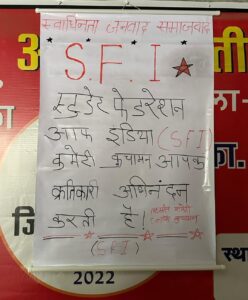 स्वाधिनता जनवाद समाजवाद
S.F.I
स्टुडेंट फेडरेशन
आफ इंडिया (SFI)
कमेटी कुचामन आपका
क्रांतिकारी अभिनंदन
करती है।
(SFI)
2022